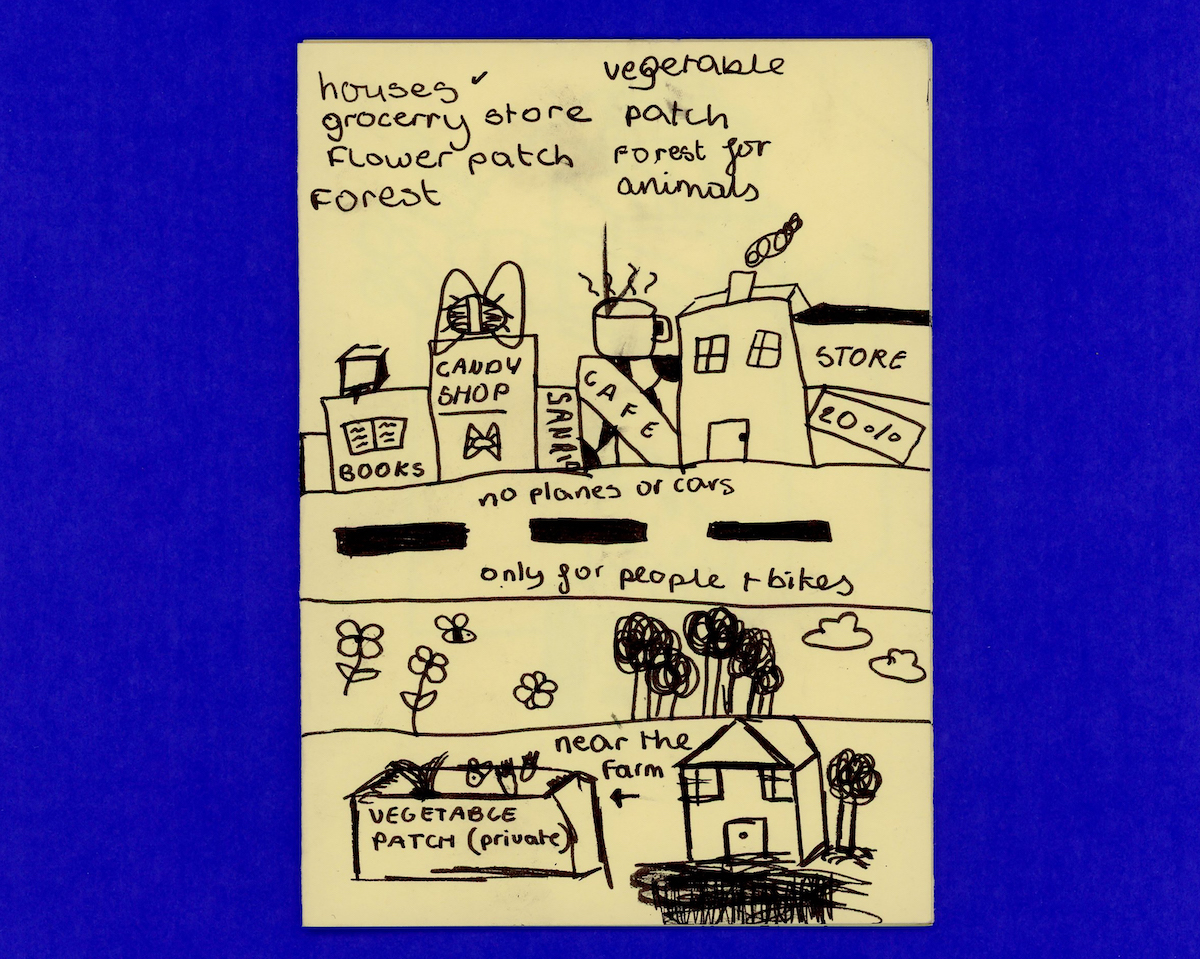 houses ✓
grocerry store
Flower patch
Forest
vegetable
patch
Forest for
animals
CANDY
SHOP
BOOKS
SANRIO
CAFE
STORE
20%
no planes or cars
only for people + bikes
near the
farm
VEGETABLE
PATCH (private)